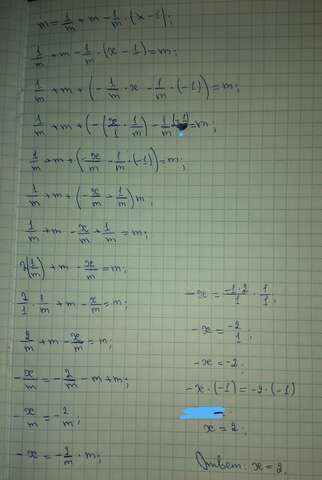 m = 1/m + m - 1/m · (x - 1);
1/m + m - 1/m · (x - 1) = m;
1/m + m + (- 1/m · x - 1/m · (-1)) = m;
1/m + m + (- (x/1 · 1/m) - 1/m (-1)) = m;
1/m + m + (- x/m - 1/m · (-1)) = m;
1/m + m + (- x/m + 1/m) m;
1/m + m - x/m + 1/m = m;
2(1/m) + m - x/m = m;
2/1 · 1/m + m - x/m = m;
2/m + m - x/m = m;
- x/m = - 2/m - m + m;
- x/m = - 2/m;
- x = - 2/m · m;
- x = -1·2/1 · 1/1;
- x = -2/1;
- x = -2;
- x · (-1) = -2 · (-1)
x = 2;
Ответ: x = 2.